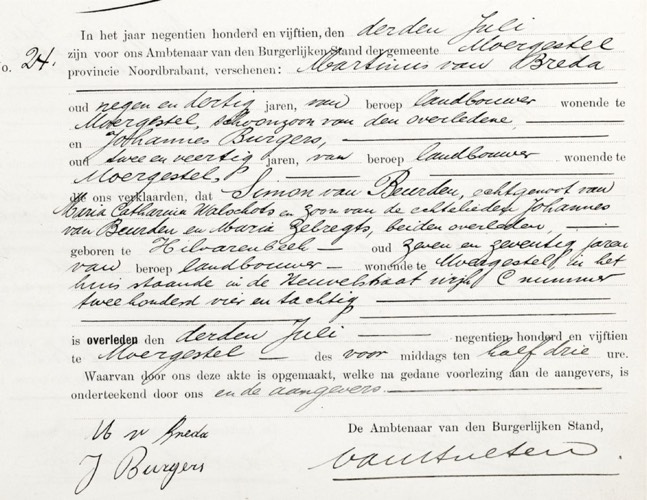 In het jaar negentien honderd en vijftien, den derden Juli
No. 24. zijn voor ons Ambtenaar van den Burgerlijken Stand der gemeente Moergestel
provincie Noordbrabant, verschenen: Martinus van Breda
oud negen en dertig jaren, van beroep landbouwer wonende te
Moergestel, schoonzoon van den overledene,
en Johannes Burgers,
oud twee en veertig jaren, van beroep landbouwer wonende te
Moergestel,
die ons verklaarden, dat Simon van Beurden, echtgenoot van
Maria Catharina Walschots en zoon van de echtelieden Johannes
van Beurden en Maria Zebregts, beiden overleden,
geboren te Hilvarenbeek oud zeven en zeventig jaren
van beroep landbouwer wonende te Moergestel, in het
huis staande in de Heuvelstraat wijk C nummer
twee honderd vier en tachtig
is overleden den derden Juli negentien honderd en vijftien
te Moergestel des voor middags ten half drie ure.
Waarvan door ons deze akte is opgemaakt, welke na gedane voorlezing aan de aangevers, is
onderteekend door ons en de aangevers
De Ambtenaar van den Burgerlijken Stand,
M v Breda
J Burgers